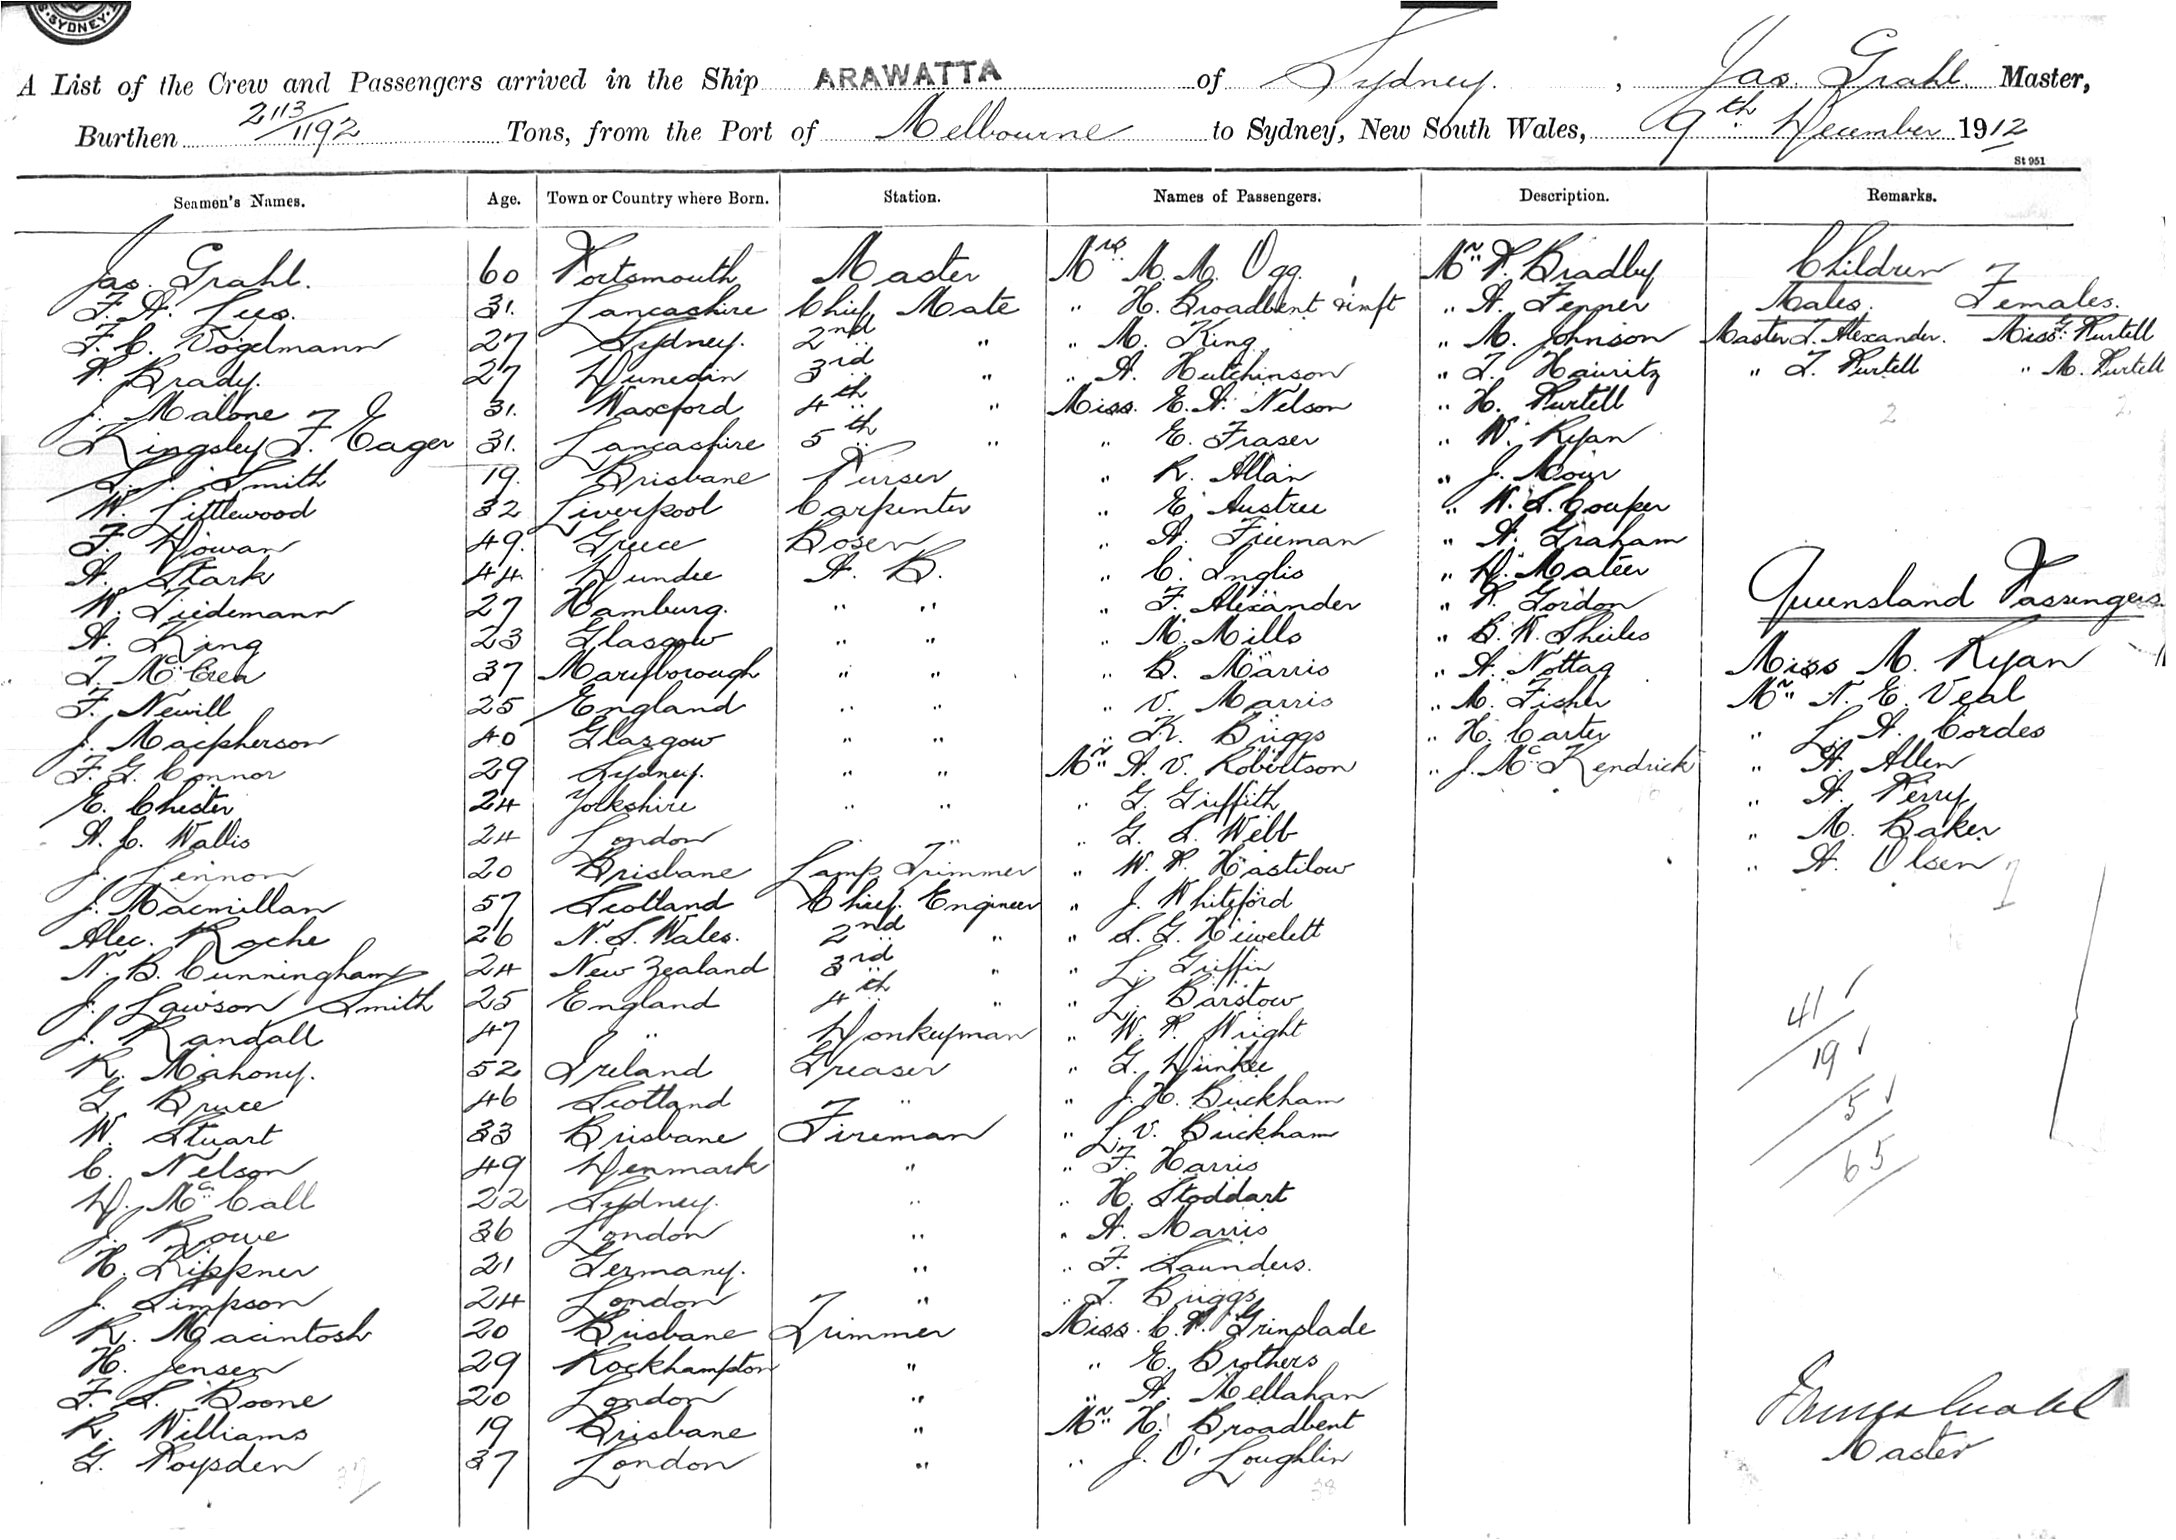 SYDNEY
A List of the Crew and Passengers arrived in the Ship ARAWATTA of Sydney, Jas. Grahl Master,
Burthen 2113/1192 Tons, from the Port of Melbourne to Sydney, New South Wales, 9th December 1912
St 951
Seamen's Names. Age. Town or Country where Born. Station. Names of Passengers. Description. Remarks.
Jas. Grahl. 60 Portsmouth Master Mrs M. M. Ogg. Mr P. Bradley Children
F. A. Lees. 31. Lancashire Chief Mate " H. Broadbent & inft " A. Fenner Males. Females.
F. C. Vogelmann 27 Sydney. 2nd " " M. King " M. Johnson Master T. Alexander. Miss E. Purtell
P. Brady. 27 Dunedin 3rd " " A. Hutchinson " T. Hauritz " T. Purtell " M. Purtell
J. Malone 31. Waxford 4th " Miss. E. A. Nelson " H. Purtell 2 2
Kingsley F. Eager 31. Lancashire 5th " " E. Fraser " W. Ryan
S. J. Smith 19. Brisbane Purser " R. Allan " J. Moir
W. Littlewood 32 Liverpool Carpenter " E. Austree " W. S. Couper
F. Howan 49. Greece Bosen " A. Freeman " A. Graham
A. Stark 44 Dundee A. B. " C. Inglis " D. Mateer
W. Tiedemann 27 Hamburg. " " " F. Alexander " P. Gordon Queensland Passengers
A. King 23 Glasgow " " " M. Mills " B. W. Sheiles
T. McCrea 37 Maryborough " " " B. Marris " A. Nottag Miss M. Ryan
F. Newill 25 England " " " V. Marris " M. Fisher Mr N. E. Veal
J. Macpherson 40 Glasgow " " " K. Briggs " H. Carter " L. A. Cordes
F. G. Connor 29 Sydney. " " Mr A. V. Robertson " J. McKendrick " A. Allen
E. Chester 24 Yorkshire " " " G. Griffith " A. Perry
A. C. Wallis 24 London " " " G. S. Webb " M. Baker
J. Lennon 20 Brisbane Lamp Trimmer " W. P. Hastilow " A. Olsen 7
J. Macmillan 57 Scotland Chief. Engineer " J. Whiteford
Alec. Roche 26 N. S. Wales. 2nd " " S. G. Hewelett
N. B. Cunningham 24 New Zealand 3rd " " L. Griffin
J. Lawson Smith 25 England 4th " " L. Barstow 41
J. Randall 47 " Donkeyman " W. P. Wright
R. Mahony. 52 Ireland Greaser " G. Dunkee 19
G. Bruce 46 Scotland " " J. H. Buckham 5
W. Stuart 33 Brisbane Fireman " L. V. Buckham
C. Nelson 49 Denmark " " F. Harris 65
D. McCall 22 Sydney. " " H. Stoddart
J. Rowe 36 London " " A. Marris
H. Lippner 21 Germany. " " F. Saunders.
J. Simpson 24 London " " T. Briggs
R. Macintosh 20 Brisbane Trimmer Miss. C. P. Grinslade
H. Jensen 29 Rockhampton " " E. Brothers
F. S. Boone 20 London " " A. Mellahan
R. Williams 19 Brisbane " Mr H. Broadbent
G. Poysden 37 London " " J. O'Loughlin Master
37 38